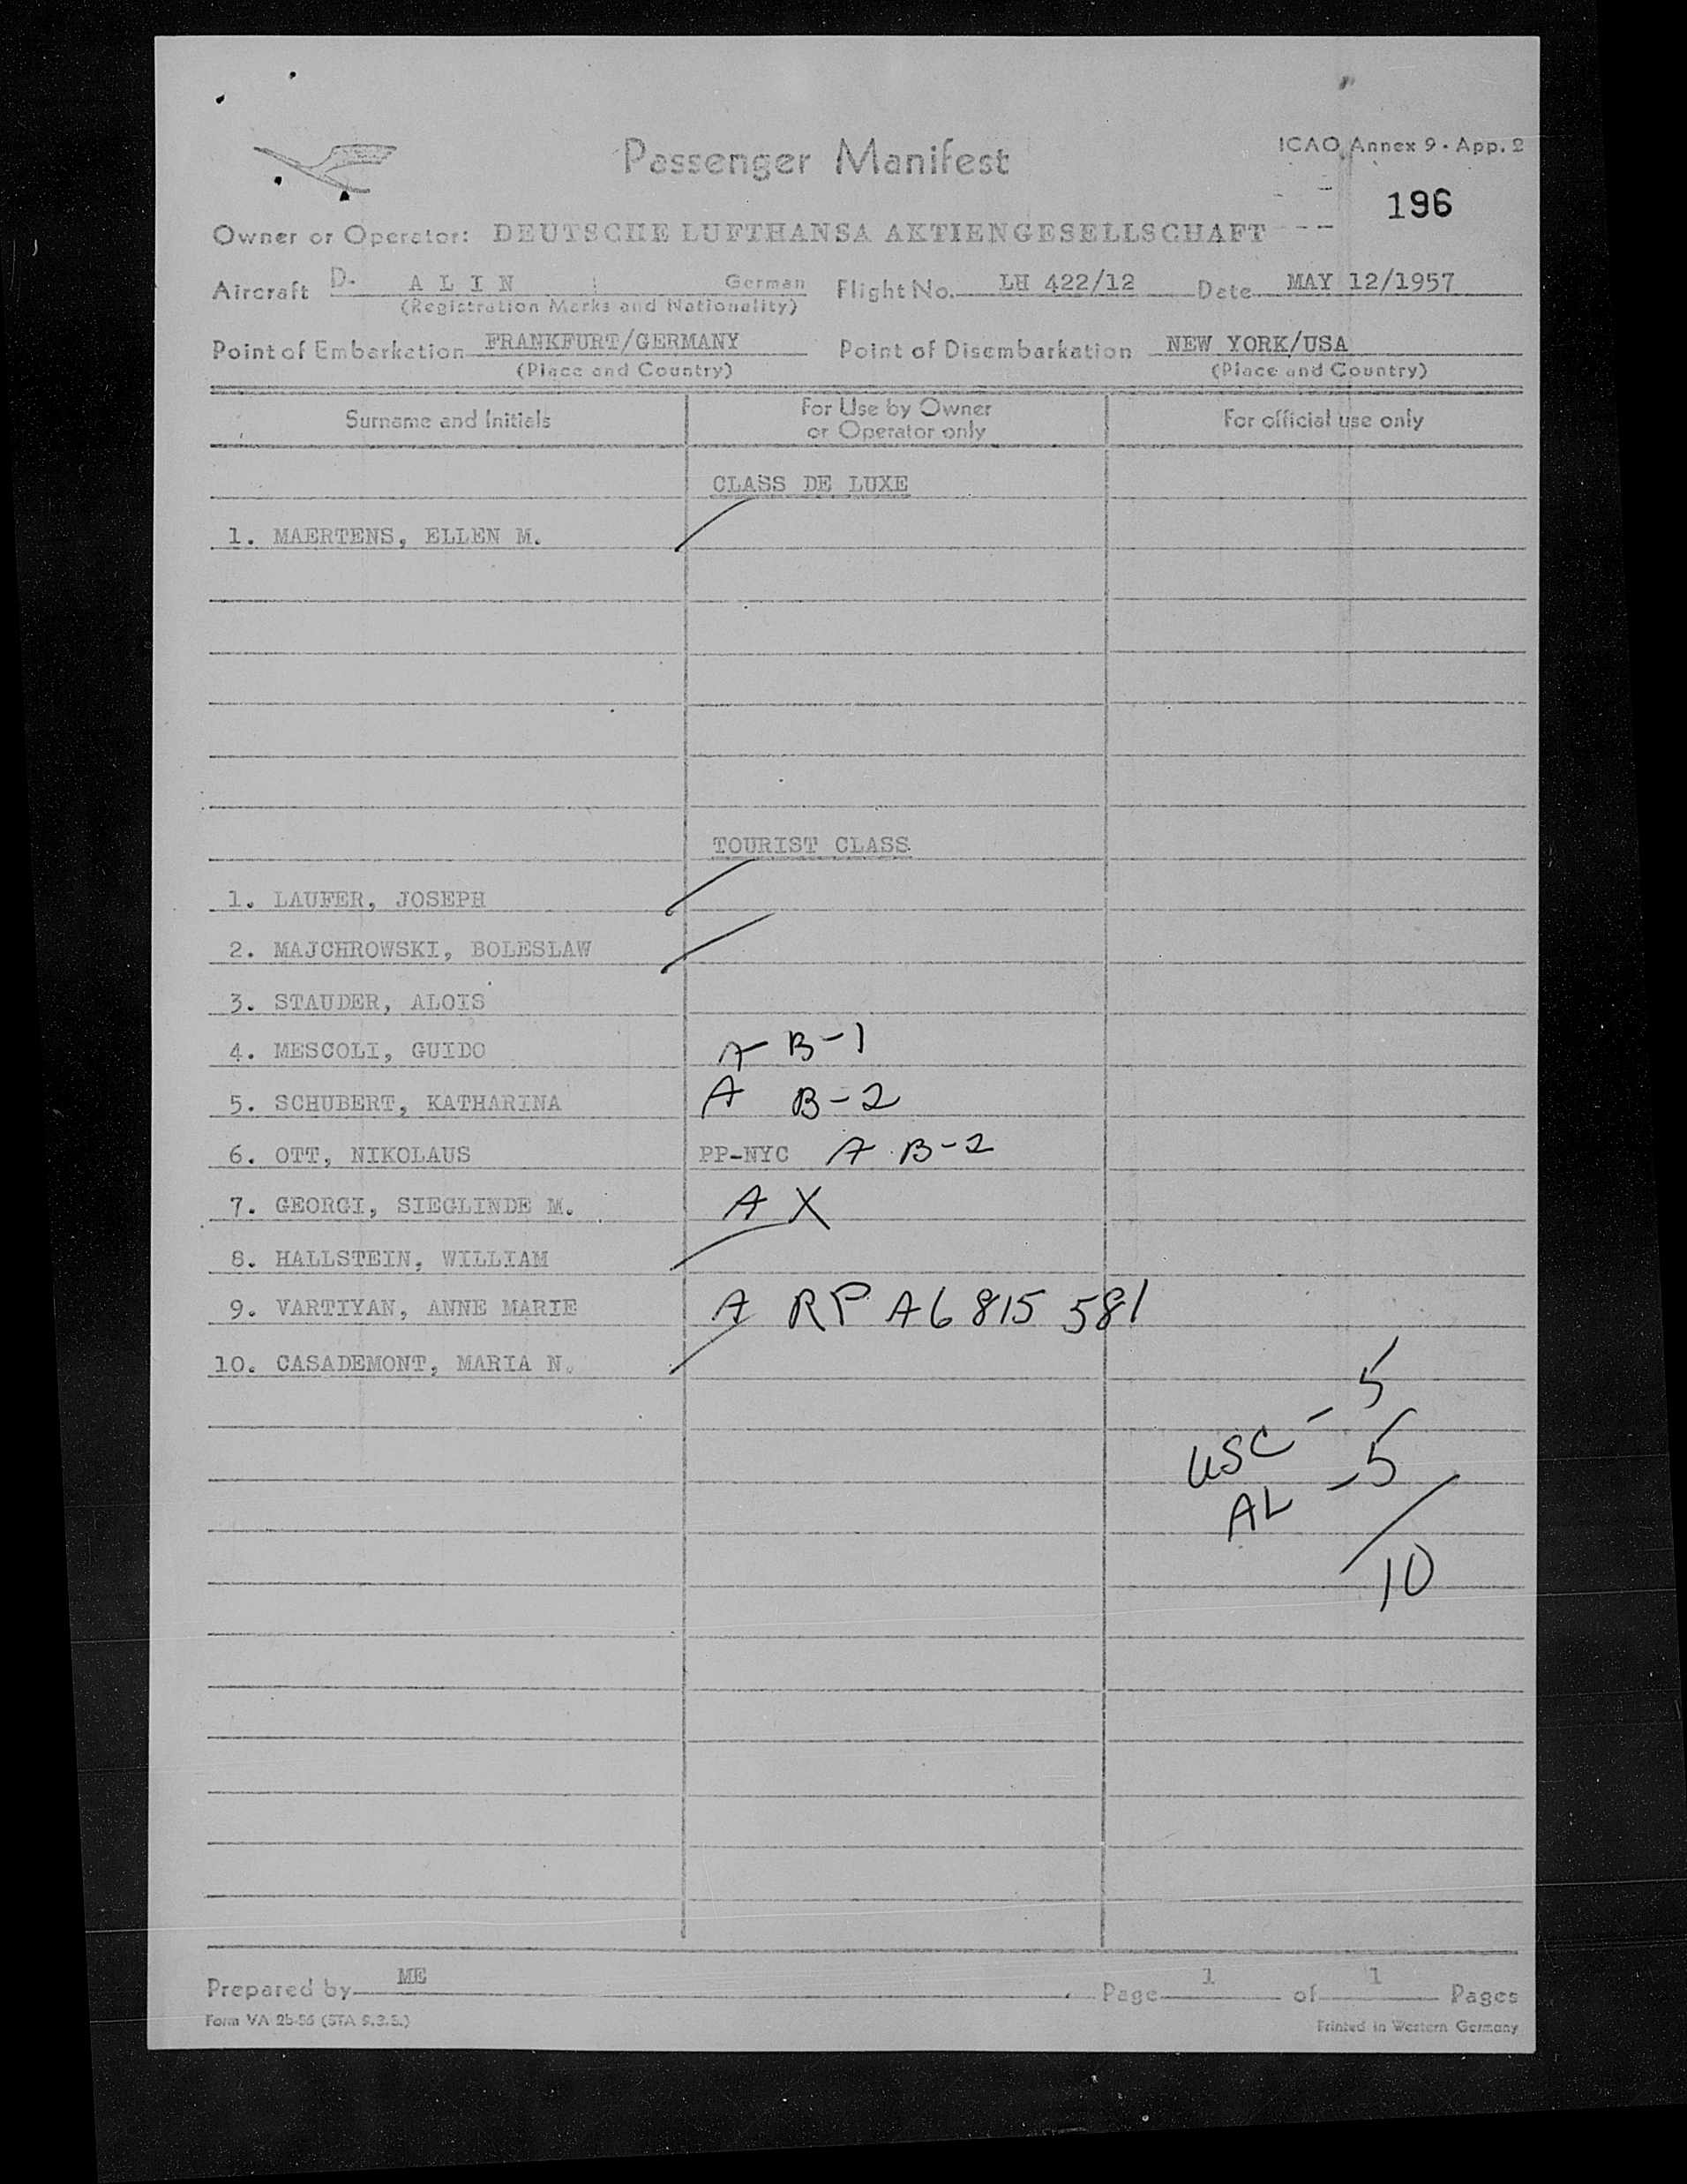 Passenger Manifest
ICAO Annex 9 - App. 2
196
Owner or Operator: DEUTSCHE LUFTHANSA AKTIENGESELLSCHAFT
Aircraft D- A L I N German Flight No. LH 422/12 Date MAY 12/1957
(Registration Marks and Nationality)
Point of Embarkation FRANKFURT/GERMANY Point of Disembarkation NEW YORK/USA
(Place and Country) (Place and Country)
Surname and Initials For Use by Owner or Operator only For official use only
CLASS DE LUXE
1. MAERTENS, ELLEN M.
TOURIST CLASS
1. LAUFER, JOSEPH
2. MAJCHROWSKI, BOLESLAW
3. STAUDER, ALOIS
4. MESCOLI, GUIDO A B-1
5. SCHUBERT, KATHARINA A B-2
6. OTT, NIKOLAUS PP-NYC A B-2
7. GEORGI, SIEGLINDE M. A X
8. HALLSTEIN, WILLIAM
9. VARTIYAN, ANNE MARIE A RP A6 815 581
10. CASADEMONT, MARIA N.
USC - 5
AL - 5
10
Prepared by ME Page 1 of 1 Pages
Form VA 2b-56 (STA 9.3.5.) Printed in Western Germany